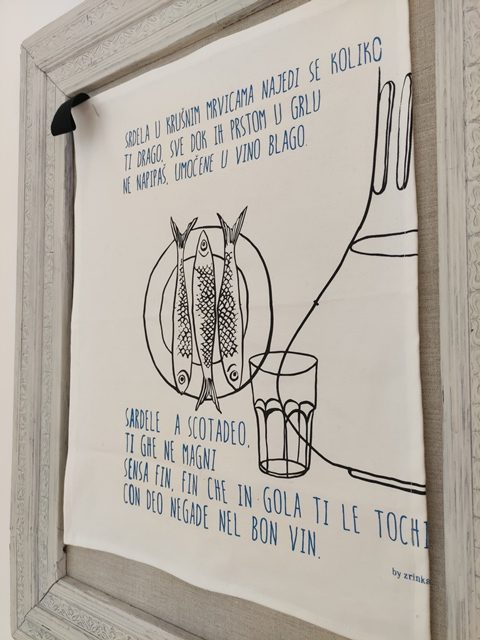 SRDELA U KRUŠNIM MRVICAMA NAJEDI SE KOLIKO
TI DRAGO, SVE DOK IH PRSTOM U GRLU
NE NAPIPAŠ, UMOČENE U VINO BLAGO.
SARDELE A SCOTADEO,
TI GHE NE MAGNI
SENSA FIN, FIN CHE IN GOLA TI LE TOCHI
CON DEO NEGADE NEL BON VIN.
by zrinka